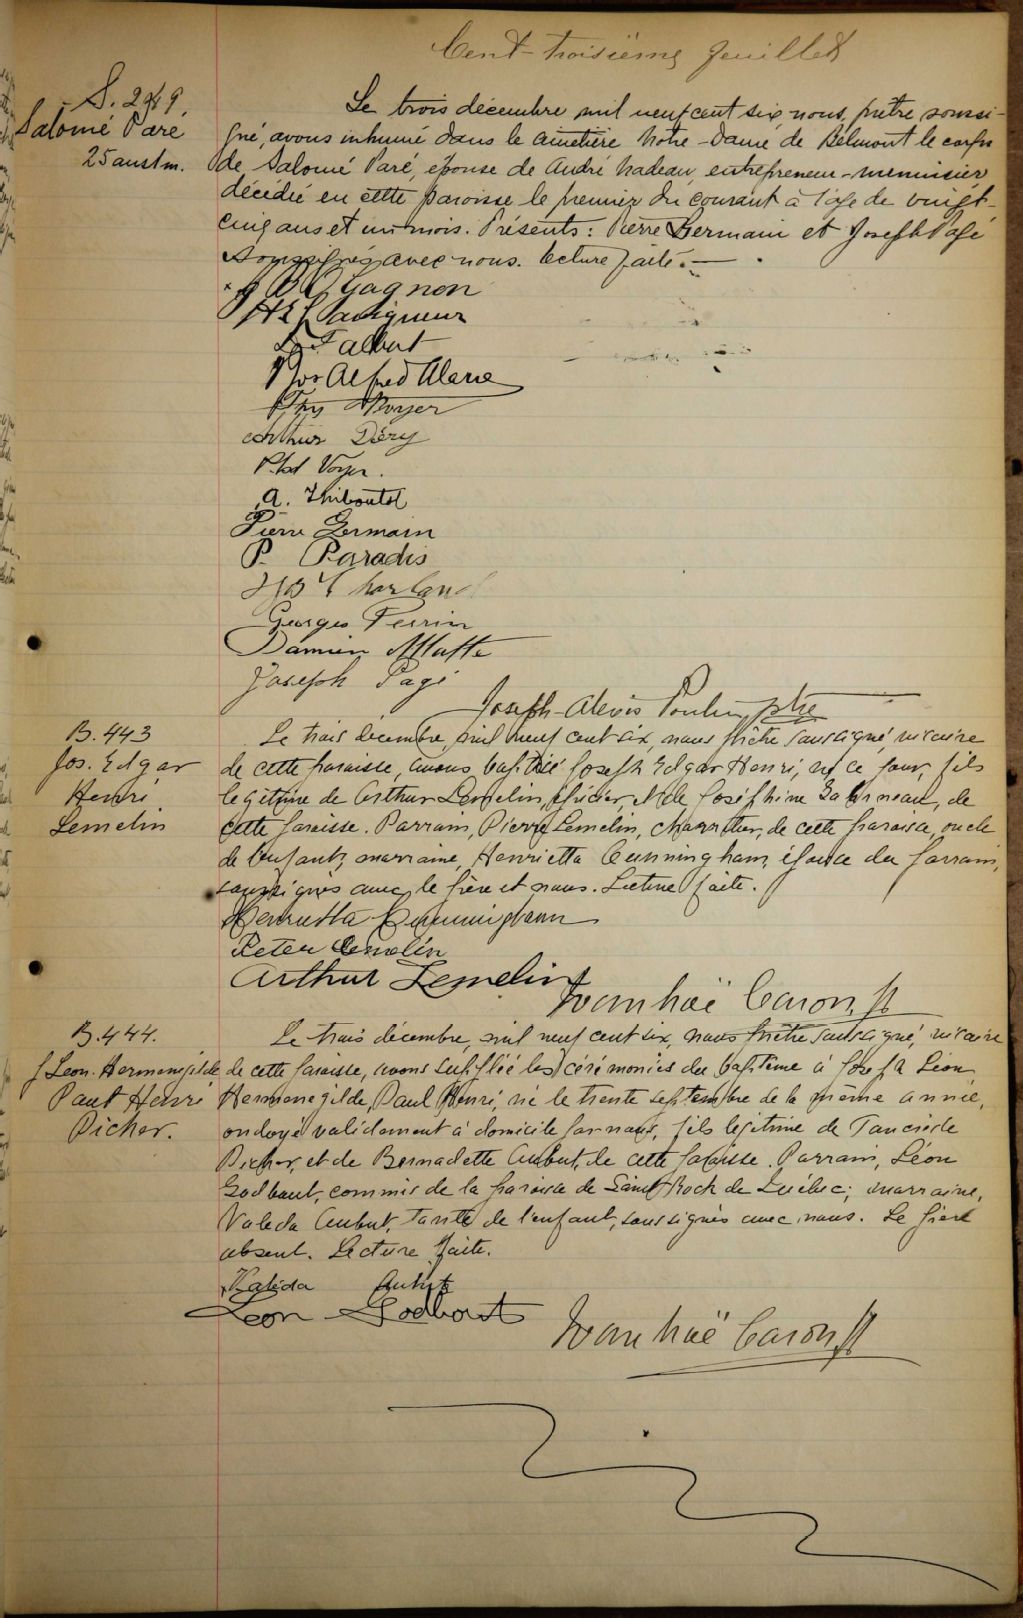 Cent-troisième feuillet
S. 249.
Salomé Paré
25 ans 1 m.
Le trois décembre mil neuf cent six, nous, prêtre soussi-
gné, avons inhumé dans le cimetière Notre-Dame de Belmont le corps
de Salomé Paré, épouse de André Nadeau, entrepreneur-menuisier
décédée en cette paroisse le premier du courant à l'âge de vingt-
cinq ans et un mois. Présents: Pierre Germain et Joseph Pagé
Soussignés avec nous. Lecture faite.
Gagnon
Lavigueur
Talbut
Jos Alfred Marie
Voyer
Arthur Déry
Voyer.
A. Thiboutot
Pierre Germain
P. Paradis
Charland
Georges Perrin
Damien Matte
Joseph Pagé
Joseph-Alexis Poulin, ptre
B. 443
Jos. Edgar
Henri
Lemelin
Le trois décembre, mil neuf cent six, nous prêtre soussigné, vicaire
de cette paroisse, avons baptisé Joseph Edgar Henri, né ce jour, fils
legitime de Arthur Lemelin, épicier, & de Joséphine Garneau, de
cette paroisse. Parrain, Pierre Lemelin, charretier, de cette paroisse, oncle
de l'enfant, marraine, Henrietta Cunningham, épouse du parrain,
soussignés avec le père et nous. Lecture faite.
Henrietta Cunningham
Peter Lemelin
Arthur Lemelin
Ivanhoë Caron, ptr
B. 444.
J. Leon. Hermenégilde
Paul Henri
Picher.
Le trois décembre, mil neuf cent six, nous prêtre soussigné, vicaire
de cette paroisse, avons suppléé les cérémonies du baptême à Joseph Léon
Hermenegilde, Paul Henri, né le trente septembre de la même année,
ondoyé validement à domicile par nous, fils legitime de Tancrède
Picher, et de Bernadette Aubut, de cette paroisse. Parrain, Léon
Godbout, commis de la paroisse de Saint Roch de Québec; marraine,
Valeda Aubut, tante de l'enfant, soussignés avec nous. Le père
absent. Lecture faite.
Valéda Aubut
Leon Godbout
Ivanhoë Caron, ptr